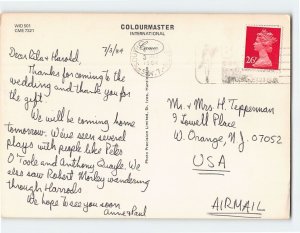 WID 501
CME 7321
COLOURMASTER
INTERNATIONAL
7/3/84
Dear Rila & Harold,
Thanks for coming to the
wedding and thank you for
the gift.
We will be coming home
tomorrow. We've seen several
plays with people like Peter
O'Toole and Anthony Quayle. We
also saw Robert Morley wandering
through Harrods
We hope to see you soon
Anne & Paul
26
Mr. & Mrs H. Tepperman
9 Lowell Place
W. Orange, N.J. 07052
USA
AIRMAIL